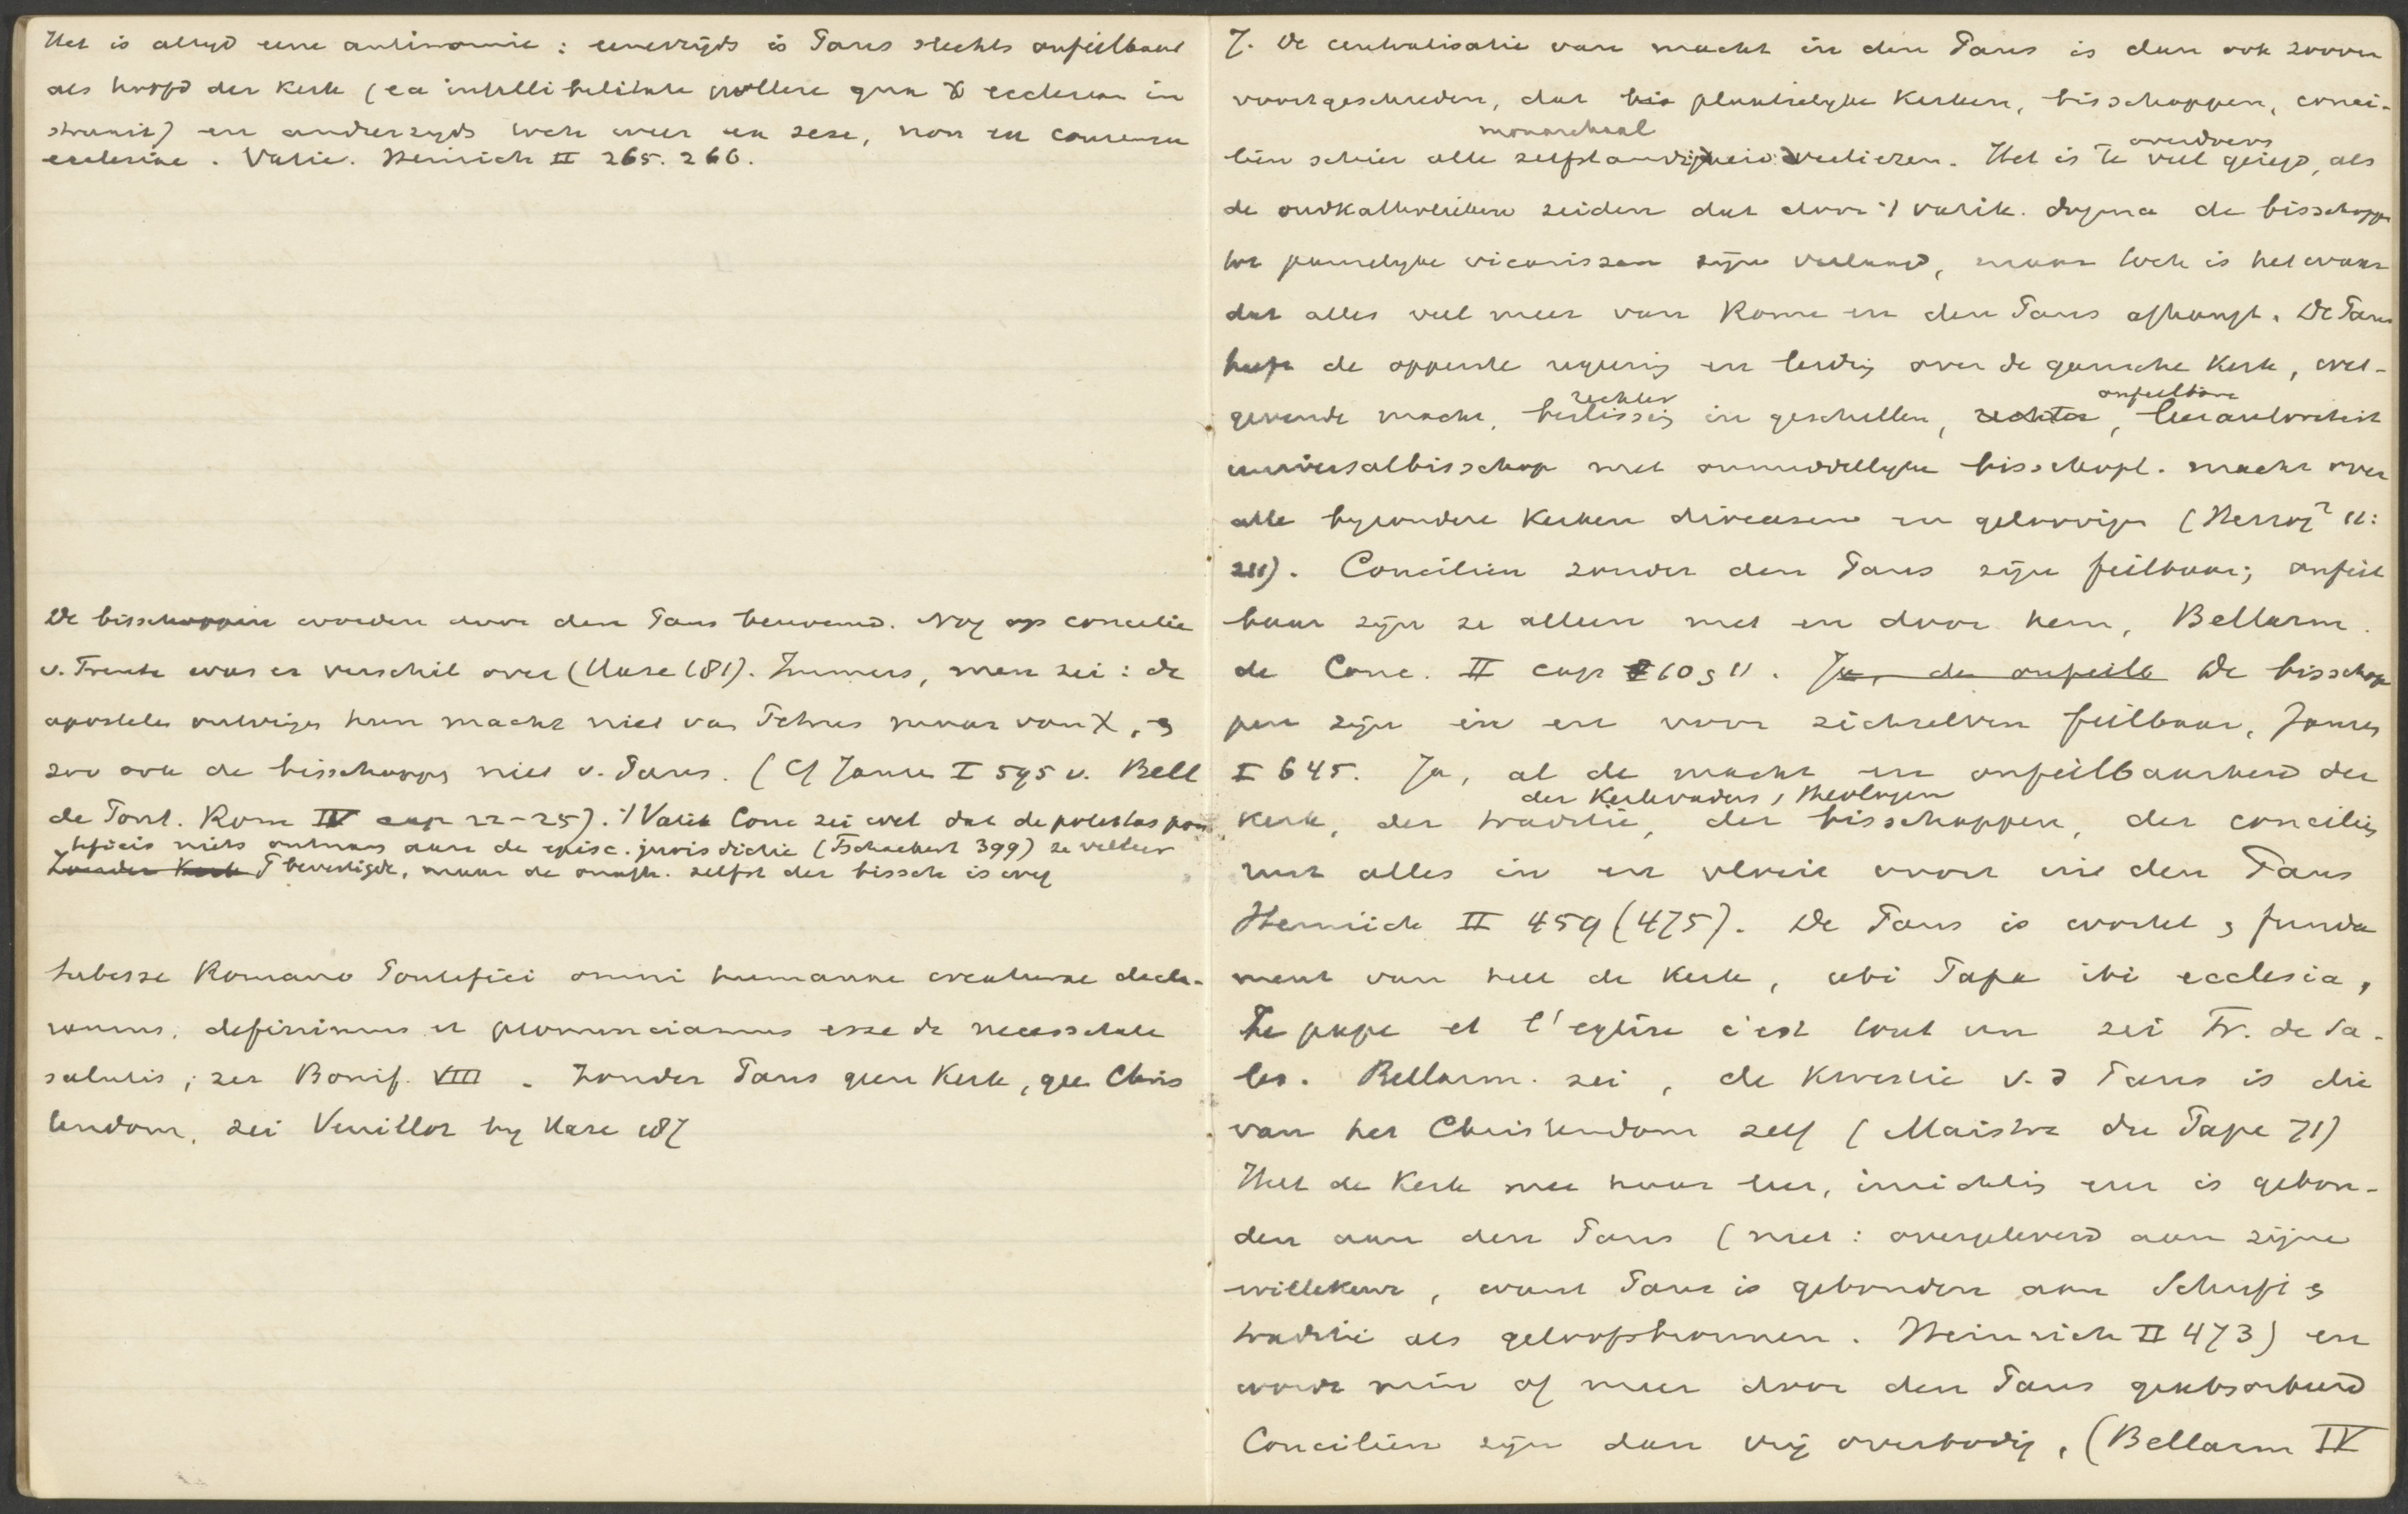 Het is altyd eene antinomie: eenerzijds is Paus slechts onfeilbaar
als hoofd der Kerk (ea infallibilitate pollere qua X ecclesiam in
struxit) en anderzyds toch weer ex sese, non ex consensu
ecclesiae. Vatic. Heinrich II 265. 266.
De bisschoppen worden door den Paus benoemd. Nog op concilie
v. Trente was er verschil over (Hase 181). Immers, men zei: de
apostelen ontvingen hun macht niet van Petrus maar van X, en
zoo ook de bisschoppen niet v. Paus. (Cf Jansen I 595 v. Bell
de Pont. Rom IV cap 22-25). 't Vatik Conc zei wel dat de potestas pon
tificis niets ontnam aan de episc. jurisdictie (Tschackert 399) ze veeleer
~~Zonder Kerk~~ bevestigde, maar de onafh. zelfst der bissch is weg
Subesse Romano Pontifici omni humanae creaturae decla-
ramus, definimus et pronunciamus esse de necessitate
salutis, zei Bonif. VIII. Zonder Paus geen Kerk, geen Chris
tendom, zei Veuillot by Hase 187
7. De centralisatie van macht in den Paus is dan ook zoover
voortgeschreden, dat ~~bis~~ plaatselyke Kerken, bisschoppen, conci-
monarchaal overdrevs
liën schier alle zelfstandigheid verliezen. Het is te veel gezegd, als
de oudkatholieken zeiden dat door 't vatik. dogma de bisschoppen
tot pauselyke vicarissen zijn verlaagd, maar toch is het waar
dat alles veel meer van Rome en den Paus afhangt. De Paus
heeft de opperste regeering en leiding over de gansche Kerk, wet-
rechter onfeilbare
gevende macht, beslissing in geschillen, ~~rechter~~, leerautoriteit
universalbisschop met onmiddellyke bisschopl. macht over
alle byzondere Kerken diocesen en geloovigen (Herzog² 11:
211). Conciliën zonder den Paus zijn feilbaar; onfeil
baar zijn ze alleen met en door hem, Bellarm.
de Conc. II cap 10 en 11. ~~Ja, de onfeilb~~ De bisschop
pen zijn in en voor zichzelven feilbaar, Jansen
I 645. Ja, al de macht en onfeilbaarheid der
der Kerkvaders, theologen
Kerk, der traditie, der bisschoppen, der conciliën
rust alles in en vloeit voort uit den Paus
Heinrich II 459 (475). De Paus is wortel en funda
ment van heel de Kerk, ubi Papa ibi ecclesia,
Le pape et l'eglise c'est tout un zei Fr. de Sa-
les. Bellarm. zei, de kwestie v. d Paus is die
van het Christendom zelf (Maistre du Pape 71)
Heel de Kerk met haar leer, inrichting enz is gebon-
den aan den Paus (niet: overgeleverd aan zijne
willekeur, want Paus is gebonden aan Schrift en
traditie als geloofsbronnen. Heinrich II 473) en
wordt min of meer door den Paus geabsorbeerd
Conciliën zijn dan vrij overbodig, (Bellarm IV